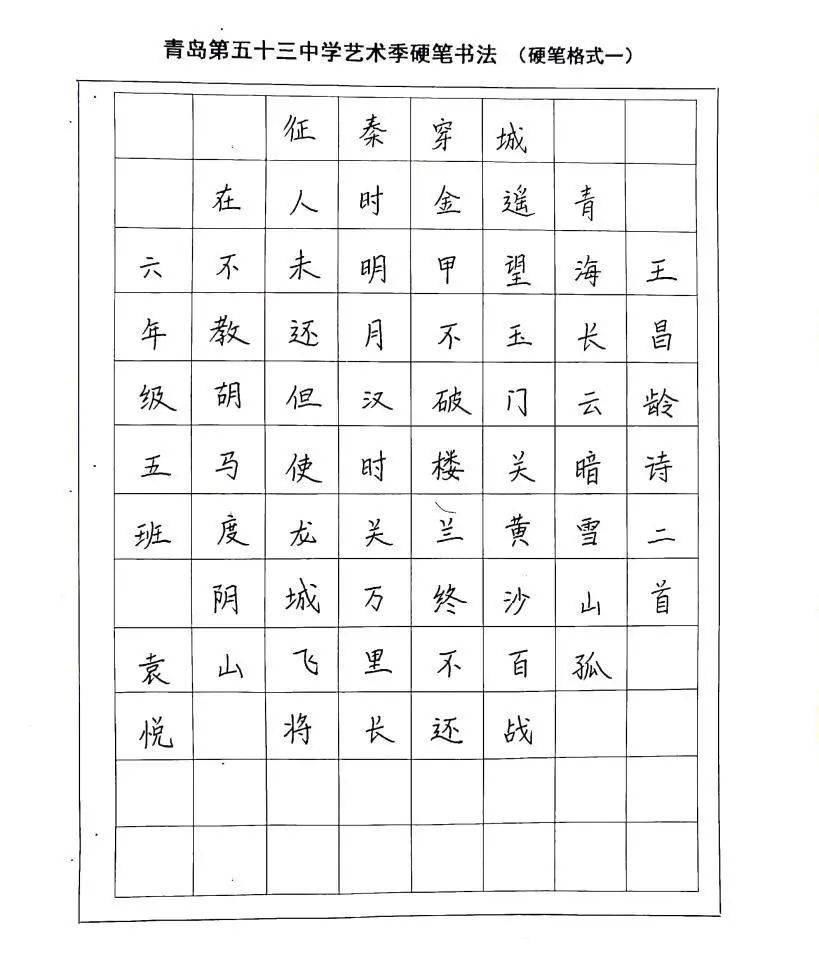 青岛第五十三中学艺术季硬笔书法 （硬笔格式一）
王昌龄诗二首
青海长云暗雪山孤
城遥望玉门关黄沙百战
穿金甲不破楼兰终不还
秦时明月汉时关万里长
征人未还但使龙城飞将
在不教胡马度阴山
六年级五班 袁悦